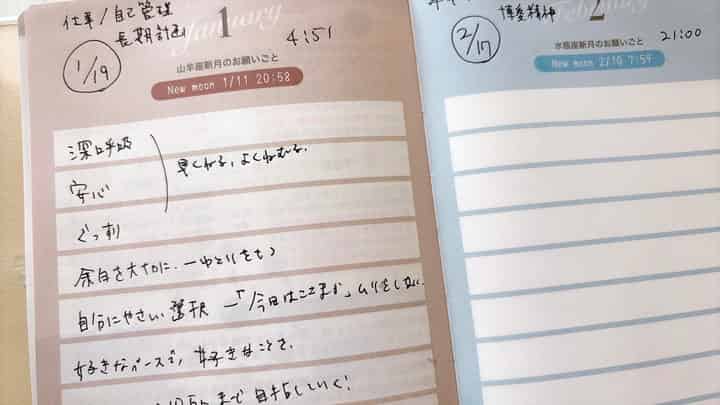 仕事/自己管理
長期計画
January
1
4:51
1/19
山羊座新月のお願いごと
New moon 1/11 20:58
深い呼吸
安心
ぐっすり
早くねる、よくねむる。
余白を大切に. ーゆとりをもつ
自分にやさしい選択 ー「今日はここまで」ムリをしない
好きなペースで,
博愛精神
February
2
2/17
21:00
水瓶座新月のお願いごと
New moon 2/10 7:59